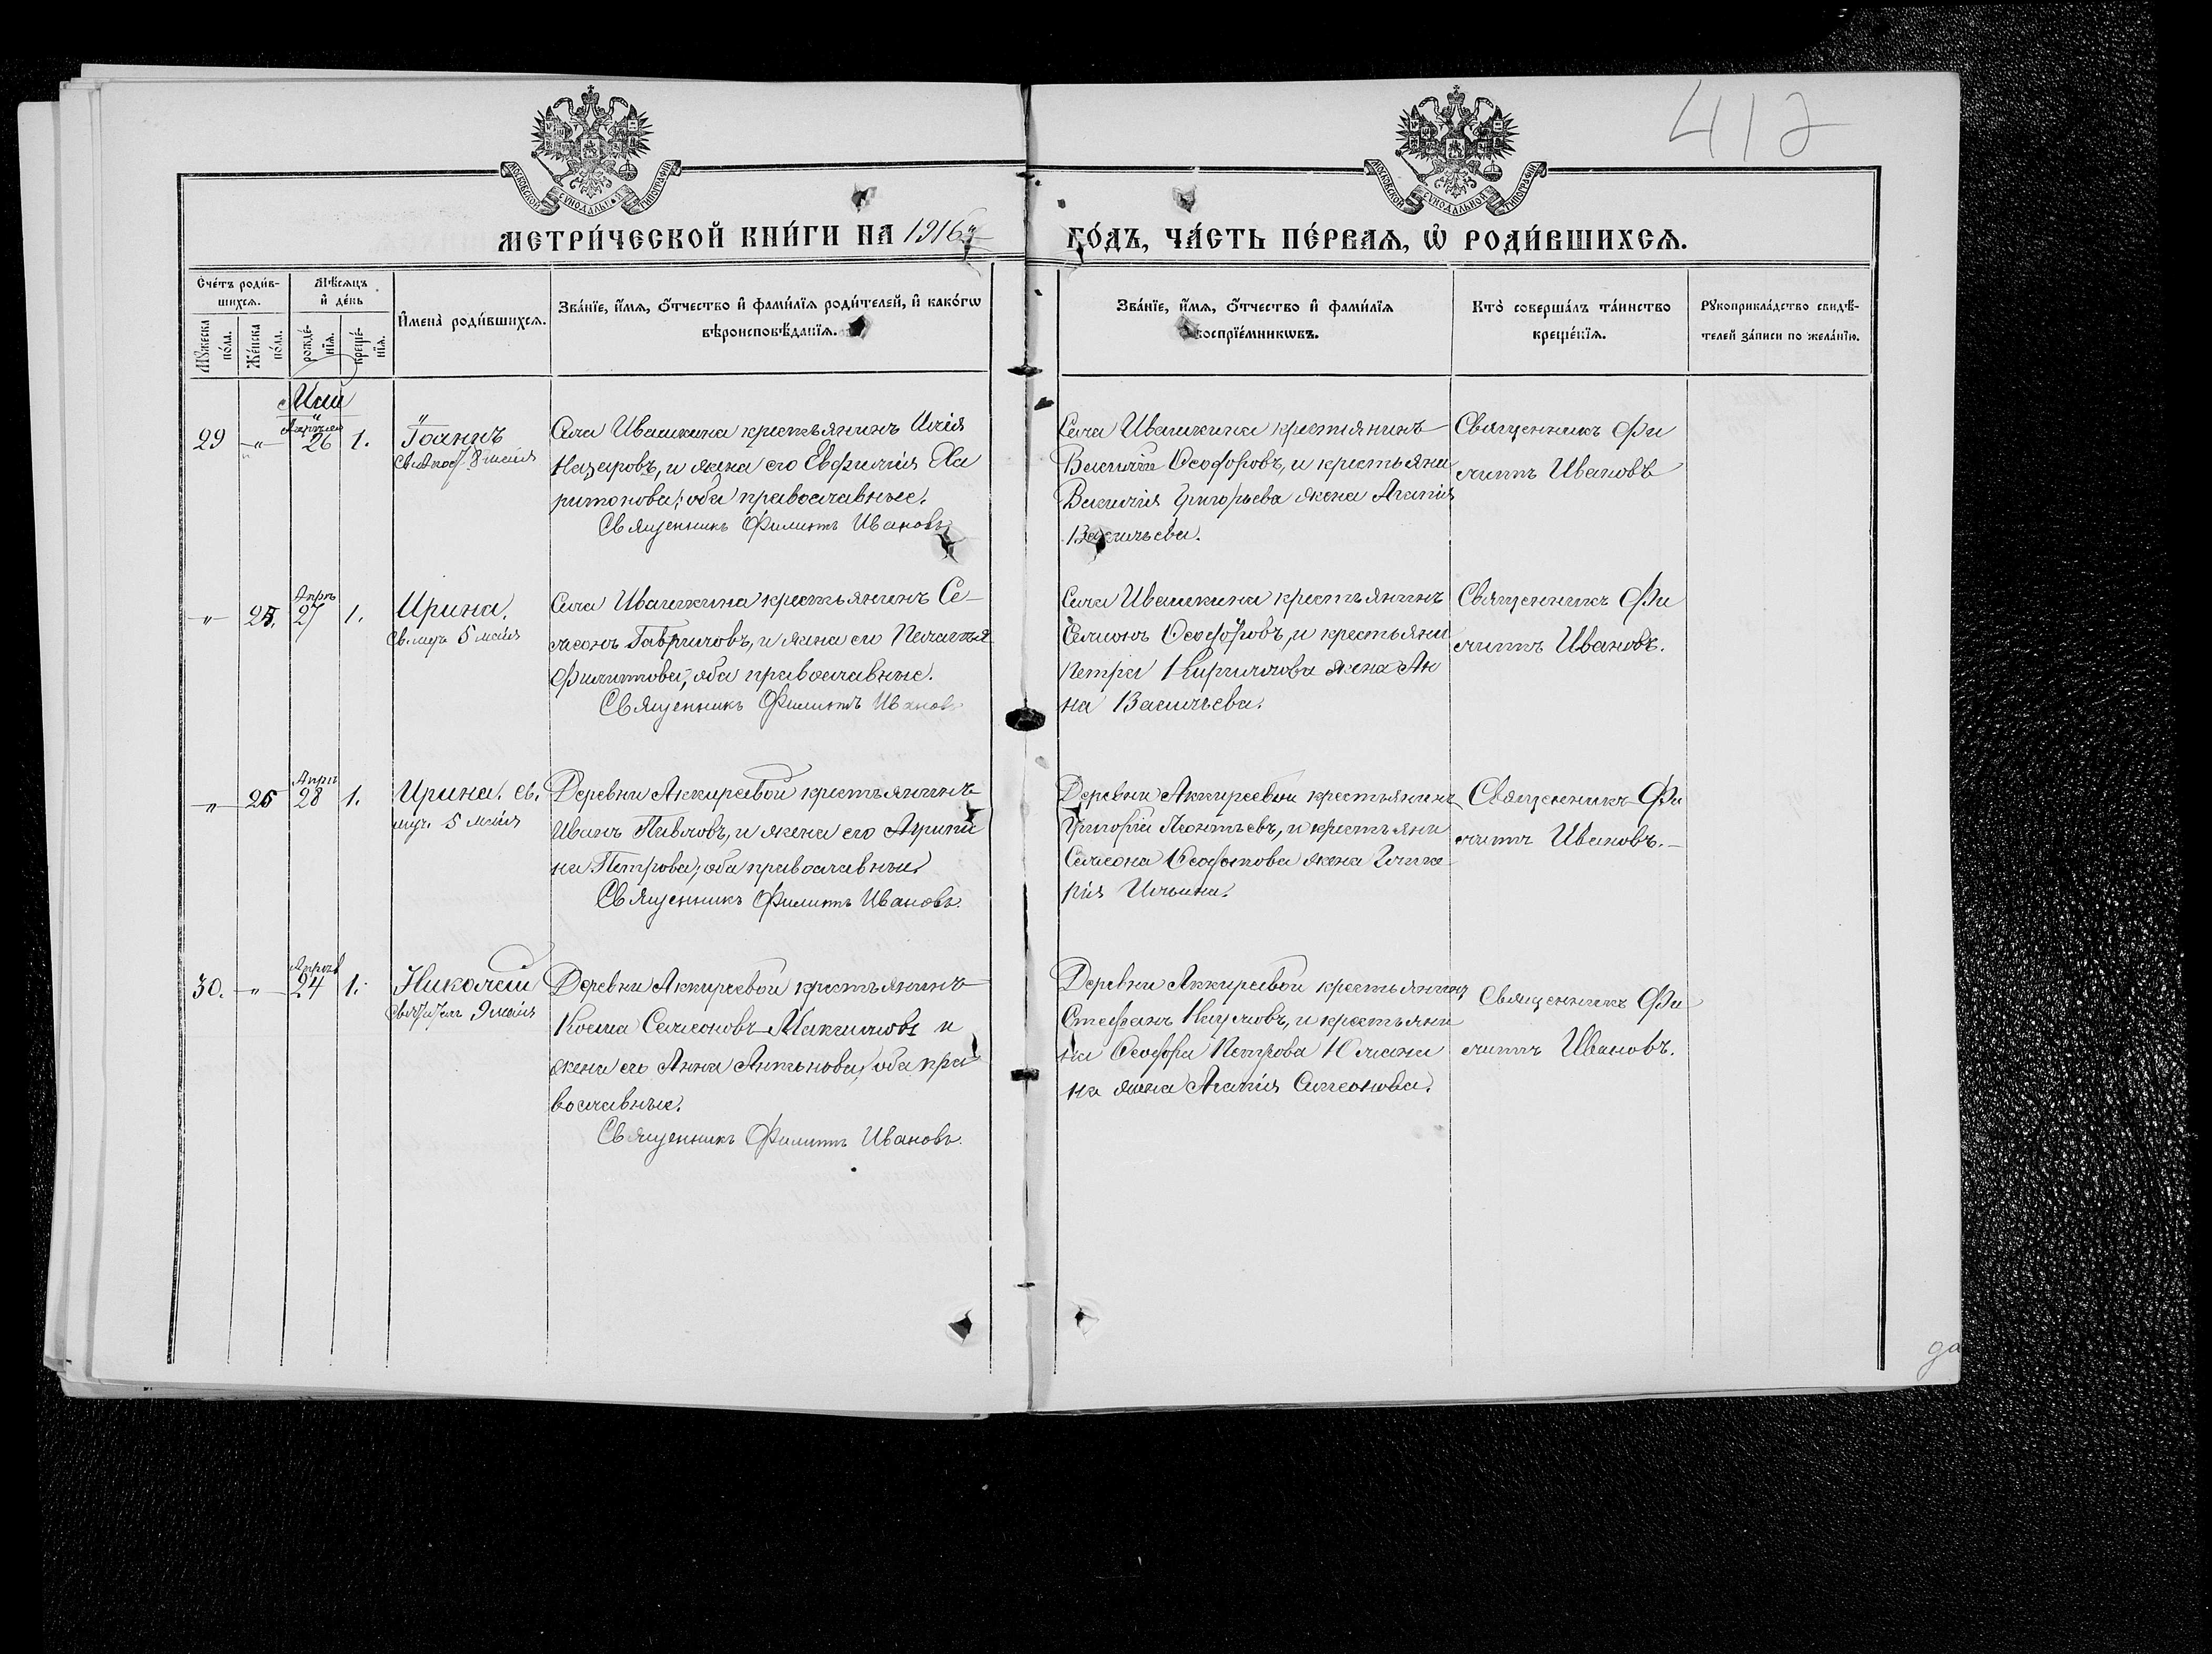 412
МОСКОВСКОЙ СѴНОДАЛЬНОЙ ТИПОГРАФІИ
МОСКОВСКОЙ СѴНОДАЛЬНОЙ ТИПОГРАФІИ
МЕТРИ́ЧЕСКОЙ КНИ́ГИ НА 1916й
ГО́ДЪ, ЧА́СТЬ ПЕ́РВАѦ, Ѡ҆ РОДИ́ВШИХСѦ.
Сче́тъ роди́в-
шихсѧ.
Мꙋ́жеска по́ла.
Же́нска по́ла.
Мѣ́сѧцъ
и҆ де́нь
рожде́-нїѧ.
креще́-нїѧ.
И҆мена̀ роди́вшихсѧ.
Зва́нїе, и҆́мѧ, ѻ҆́тчество и҆ фами́лїѧ роди́телей, и҆ како́гѡ
вѣроисповѣ́данїѧ.
Зва́нїе, и҆́мѧ, ѻ҆́тчество и҆ фами́лїѧ
воспрїе́мникѡвъ.
Кто̀ соверша́лъ та́инство
креще́нїѧ.
Рꙋкоприкла́дство свидѣ́-
телей за́писи по жела́нїю.
Май
29 -"- Апрѣля 26 1.
Іоаннъ
Св. Апос. 8 мая
Села Ивашкина крестьянинъ Илія
Назаровъ, и жена его Евфимія Ха
ритонова; оба православные.
Священникъ Филиппъ Ивановъ
Села Ивашкина крестьянинъ
Василій Ѳеофоровъ, и крестьяни
Василія Григорьева жена Агапія
Васильева.
Священникъ Фи
липпъ Ивановъ
-"- 25. Апрѣ 27 1.
Ирина.
Св. муч. 5 мая
Села Ивашкина крестьянинъ Се-
меонъ Гавриловъ, и жена его Пелагія
Филиппова; оба православные.
Священникъ Филиппъ Иванов
Села Ивашкина крестьянинъ
Симеонъ Ѳеофоровъ, и крестьяни
Петра Кириллова жена Ан
на Васильева.
Священникъ Фи
липпъ Ивановъ.
-"- 26 Апрѣ 28 1.
Ирина. св.
муч. 5 мая
Деревни Аккиреевой крестьянинъ
Иванъ Павловъ, и жена его Агрипи
на Петрова; оба православные
Священникъ Филиппъ Ивановъ.
Деревни Аккиреевой крестьянинъ
Григорій Леонтьевъ, и крестьяни
Симеона жена Глике
рія Ильина.
Священникъ Фи
липпъ Ивановъ.-
30. -"- Апрѣл 24 1.
Николай
Святит. 9 мая
Деревни Аккиреевой крестьянинъ
Косма Симеоновъ Максимовъ и
жена его Анна Антонова; оба пра
вославные.
Священникъ Филиппъ Ивановъ.
Деревни Аккиреевой крестьянинъ
Стефанъ Наумовъ, и крестьяни
на Петрова Юмани
на жена Агапія Симеонова.
Священникъ Фи
липпъ Ивановъ.